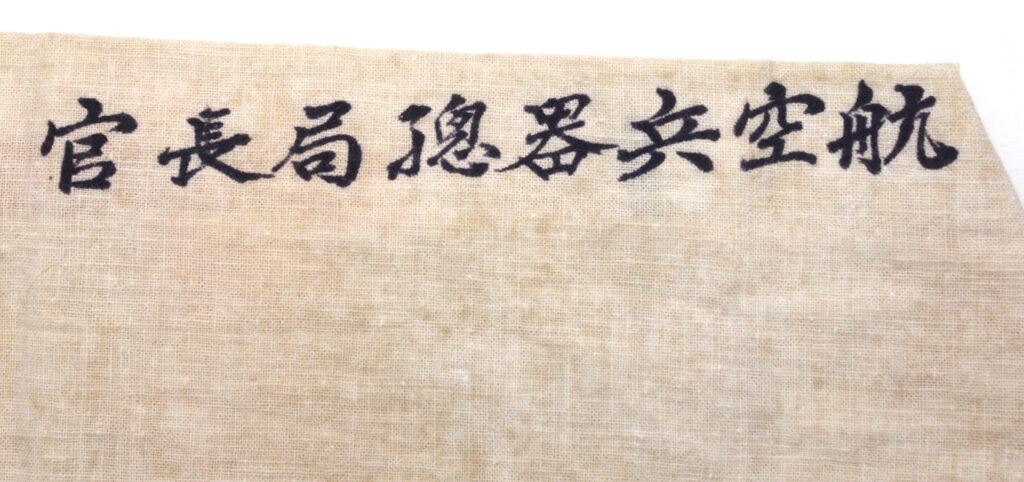 航空兵器總局長官